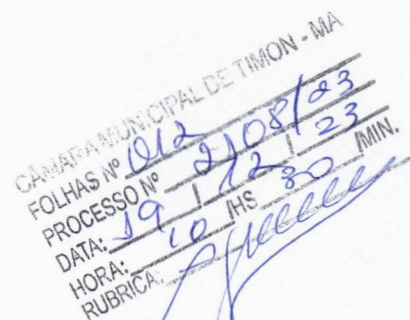 CÂMARA MUNICIPAL DE TIMON - MA
FOLHAS Nº 012
PROCESSO Nº 2108/23
DATA: 19 / 12 / 23
HORA: 10 HS 30 MIN.
RUBRICA: